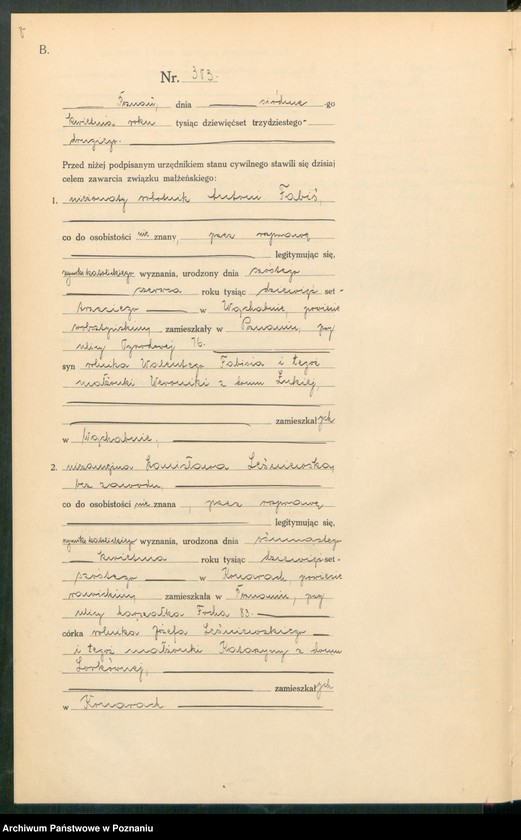 B.
Nr. 383.
Poznań, dnia siódme -go
kwietnia roku tysiąc dziewięćset trzydziestego
drugiego.
Przed niżej podpisanym urzędnikiem stanu cywilnego stawili się dzisiaj
celem zawarcia związku małżeńskiego:
1. nieżonaty robotnik Antoni Fabiś,
co do osobistości nie znany, przez rozprawę
legitymując się,
rzymsko katolickiego wyznania, urodzony dnia szóstego
czerwca roku tysiąc dziewięć set -
trzeciego w Wąchabnie, powiecie
wolsztyńskim zamieszkały w Poznaniu, przy
ulicy Ogrodowej 16.
syn rolnika Walentego Fabisia i tegoż
małżonki Weroniki z domu Łukiej,
zamieszkałych
w Wąchabnie,
2. niezamężna Leśniewska,
bez zawodu,
co do osobistości nie znana, przez rozprawę
legitymując się,
rzymsko katolickiego wyznania, urodzona dnia
kwietnia roku tysiąc dziewięć set -
szóstego w Konarach, powiecie
rawickim zamieszkała w Poznaniu, przy
ulicy Focha 83.
córka rolnika Józefa Leśniewskiego
i tegoż małżonki Katarzyny z domu
zamieszkałych
w Konarach
Archiwum Państwowe w Poznaniu